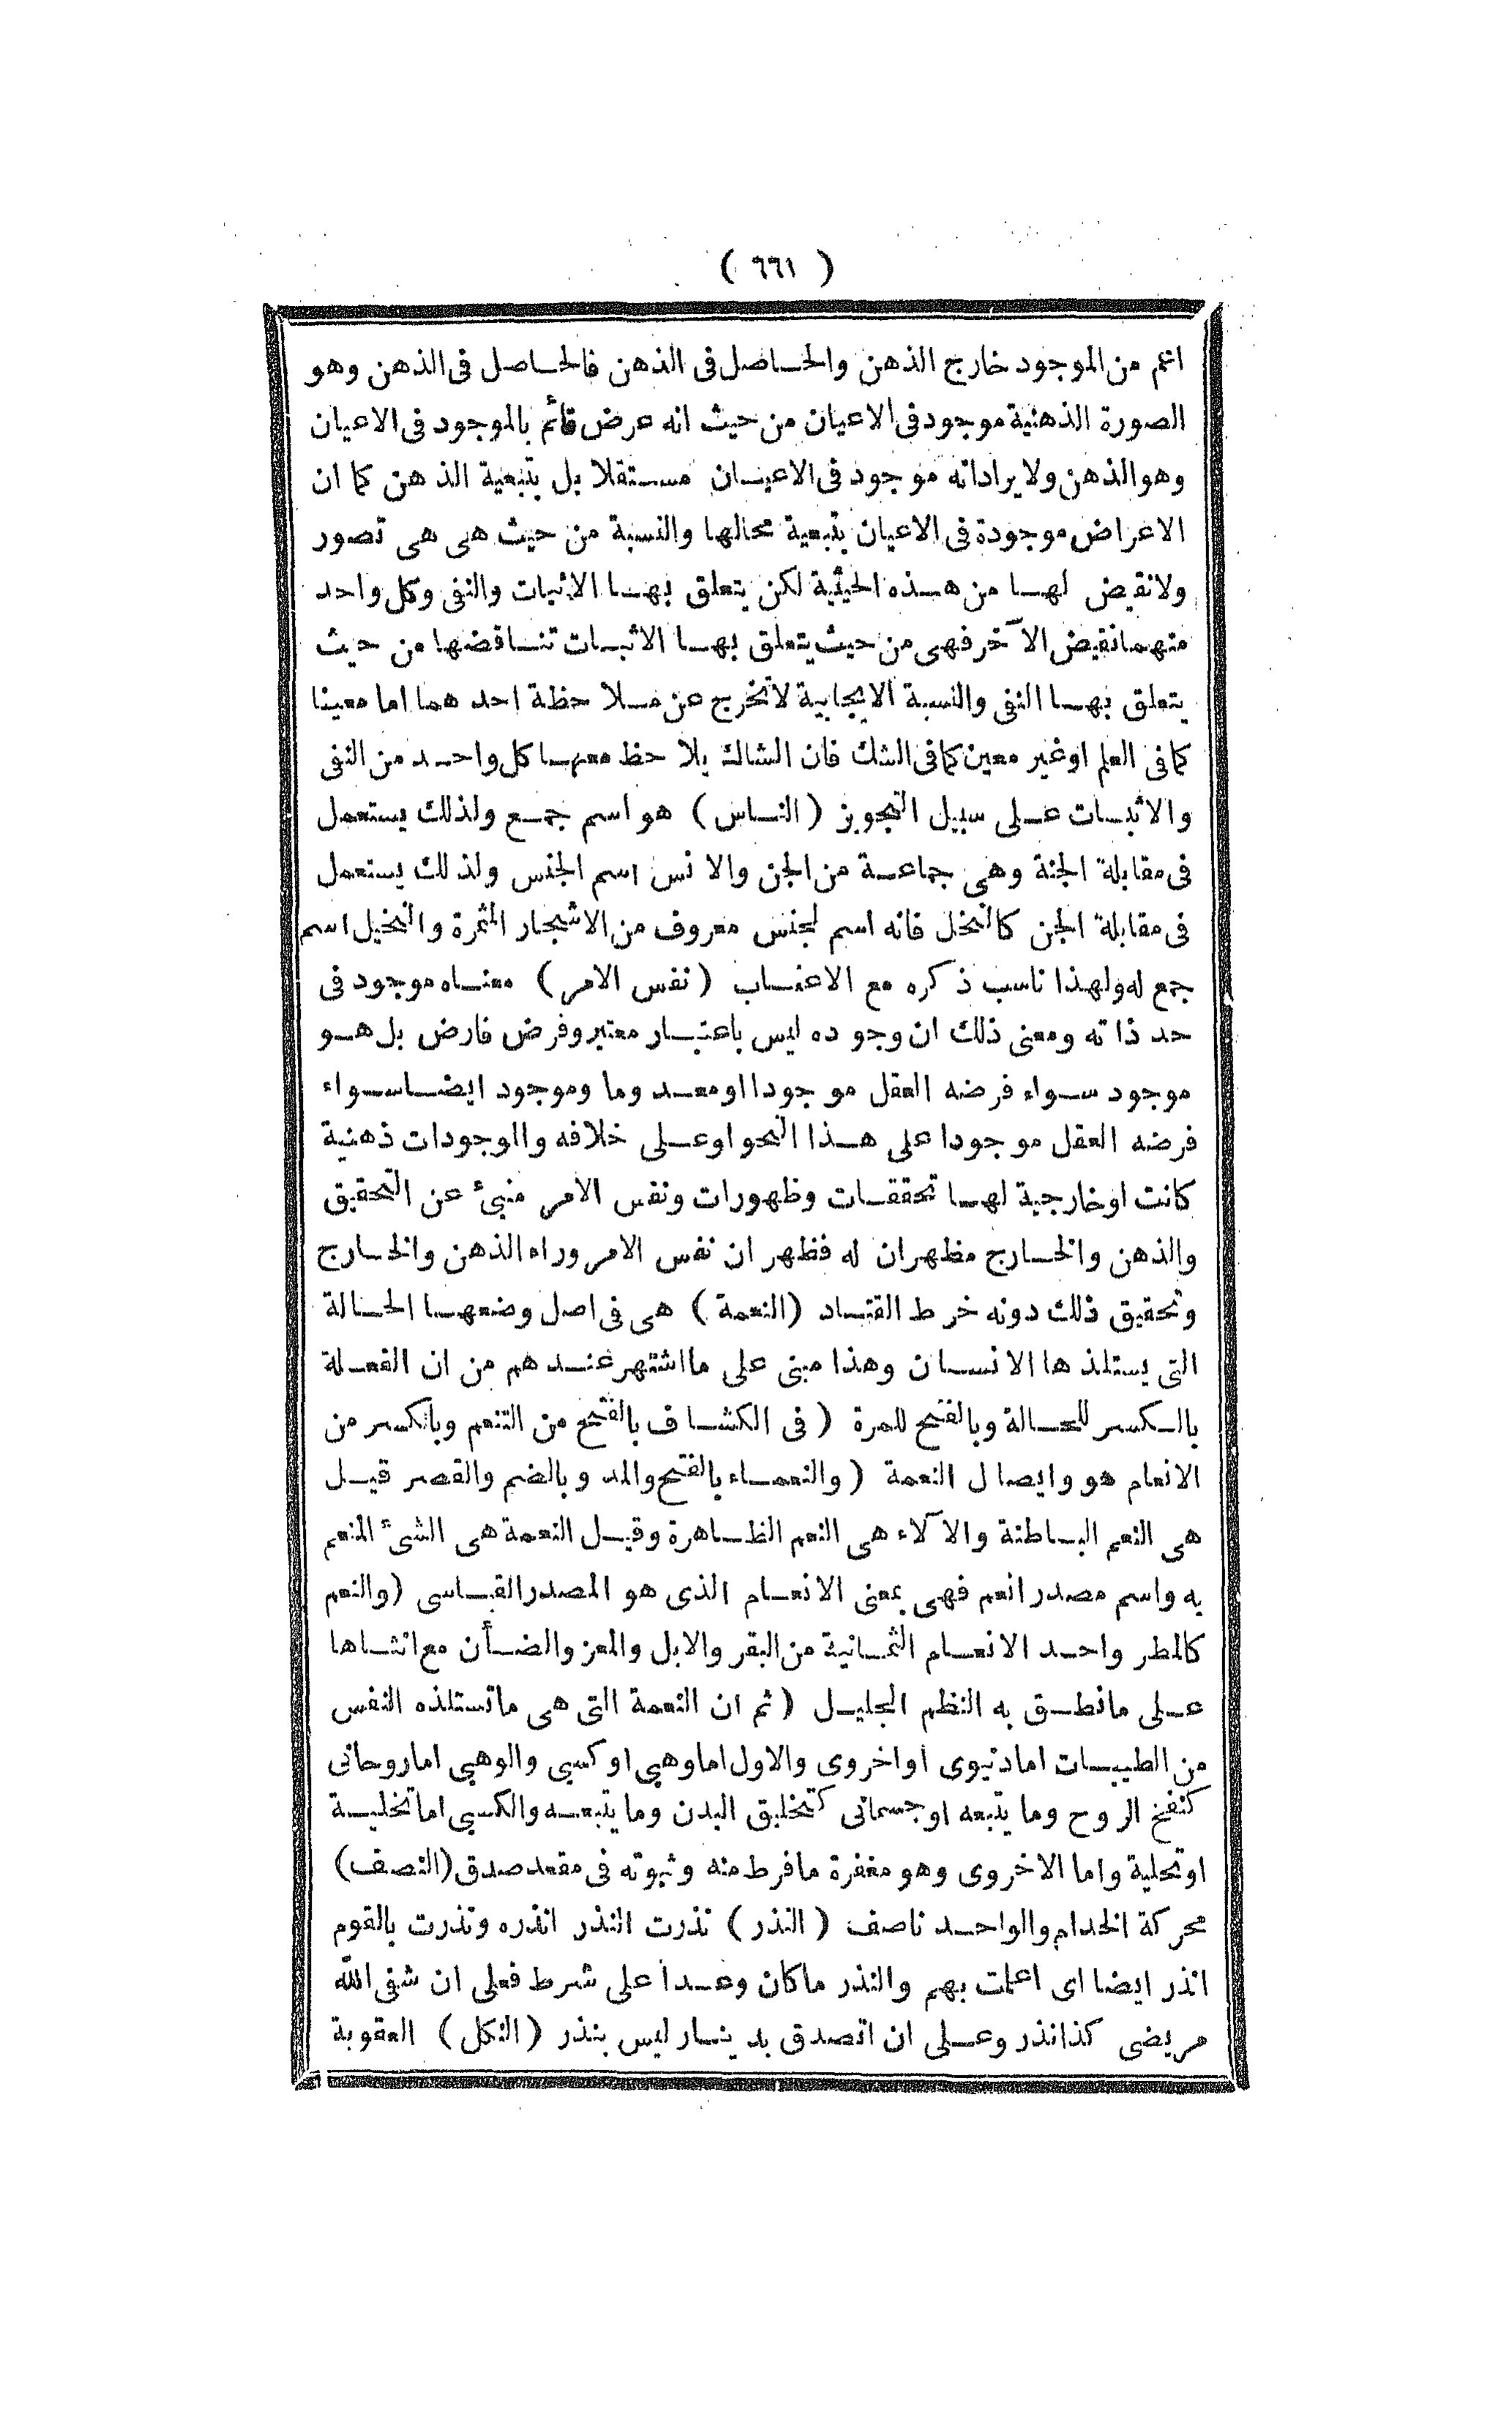 ( ٦٦١ )
اعم من الموجود خارج الذهن والحاصل فى الذهن فالحاصل فى الذهن وهو
الصورة الذهنية موجود فى الاعيان من حيث انه عرض قائم بالموجود فى الاعيان
وهو الذهن ولا يراد انه موجود فى الاعيان مستقلا بل بتبعية الذهن كما ان
الاعراض موجودة فى الاعيان بتبعية محالها والنسبة من حيث هى هى تصور
ولا نقيض لها من هذه الحيثية لكن يتعلق بها الاثبات والنفى وكل واحد
منهما نقيض الآخر فهى من حيث يتعلق بها الاثبات تناقضها من حيث
يتعلق بها النفى والنسبة الايجابية لا تخرج عن ملاحظة احدهما اما معينا
كما فى العلم او غير معين كما فى الشك فان الشاك يلاحظ معها كل واحد من النفى
والاثبات على سبيل التجويز ( الناس ) هو اسم جمع ولذلك يستعمل
فى مقابلة الجنة وهى جماعة من الجن والانس اسم الجنس ولذلك يستعمل
فى مقابلة الجن كالنخل فانه اسم لجنس معروف من الاشجار المثمرة والنخيل اسم
جمع له ولهذا ناسب ذكره مع الاعناب ( نفس الامر ) معناه موجود فى
حد ذاته ومعنى ذلك ان وجوده ليس باعتبار معتبر وفرض فارض بل هو
موجود سواء فرضه العقل موجودا او معدوما وموجود ايضا سواء
فرضه العقل موجودا على هذا النحو او على خلافه والوجودات ذهنية
كانت او خارجية لها تحققات وظهورات ونفس الامر منبئ عن التحقيق
والذهن والخارج مظهران له فظهر ان نفس الامر وراء الذهن والخارج
وتحقيق ذلك دونه خرط القتاد ( النعمة ) هى فى اصل وضعها الحالة
التى يستلذها الانسان وهذا مبنى على ما اشتهر عندهم من ان الفعلة
بالكسر للحالة وبالفتح للمرة ( فى الكشاف بالفتح من التنعم وبالكسر من
الانعام هو وايصال النعمة ( والنعماء بالفتح والمد وبالضم والقصر قيل
هى النعم الباطنة والآلاء هى النعم الظاهرة وقيل النعمة هى الشئ المنعم
به واسم مصدر انعم فهى بمعنى الانعام الذى هو المصدر القياسى ( والنعم
كالمطر واحد الانعام الثمانية من البقر والابل والمعز والضأن مع انثاها
على ما نطق به النظم الجليل ( ثم ان النعمة التى هى ما تستلذه النفس
من الطيبات اما دنيوى او اخروى والاول اما وهبى او كسبى والوهبى اما روحانى
كنفخ الروح وما يتبعه او جسمانى كتخليق البدن وما يتبعه والكسبى اما تخلية
او تحلية واما الاخروى وهو مغفرة ما فرط منه وثبوته فى مقعد صدق ( النصف )
محركة الخدام والواحد ناصف ( النذر ) نذرت النذر انذره ونذرت بالقوم
انذر ايضا اى اعلمت بهم والنذر ما كان وعدا على شرط فعلى ان شفى الله
مريضى كذا نذر وعلى ان اتصدق بدينار ليس بنذر ( النكل ) العقوبة